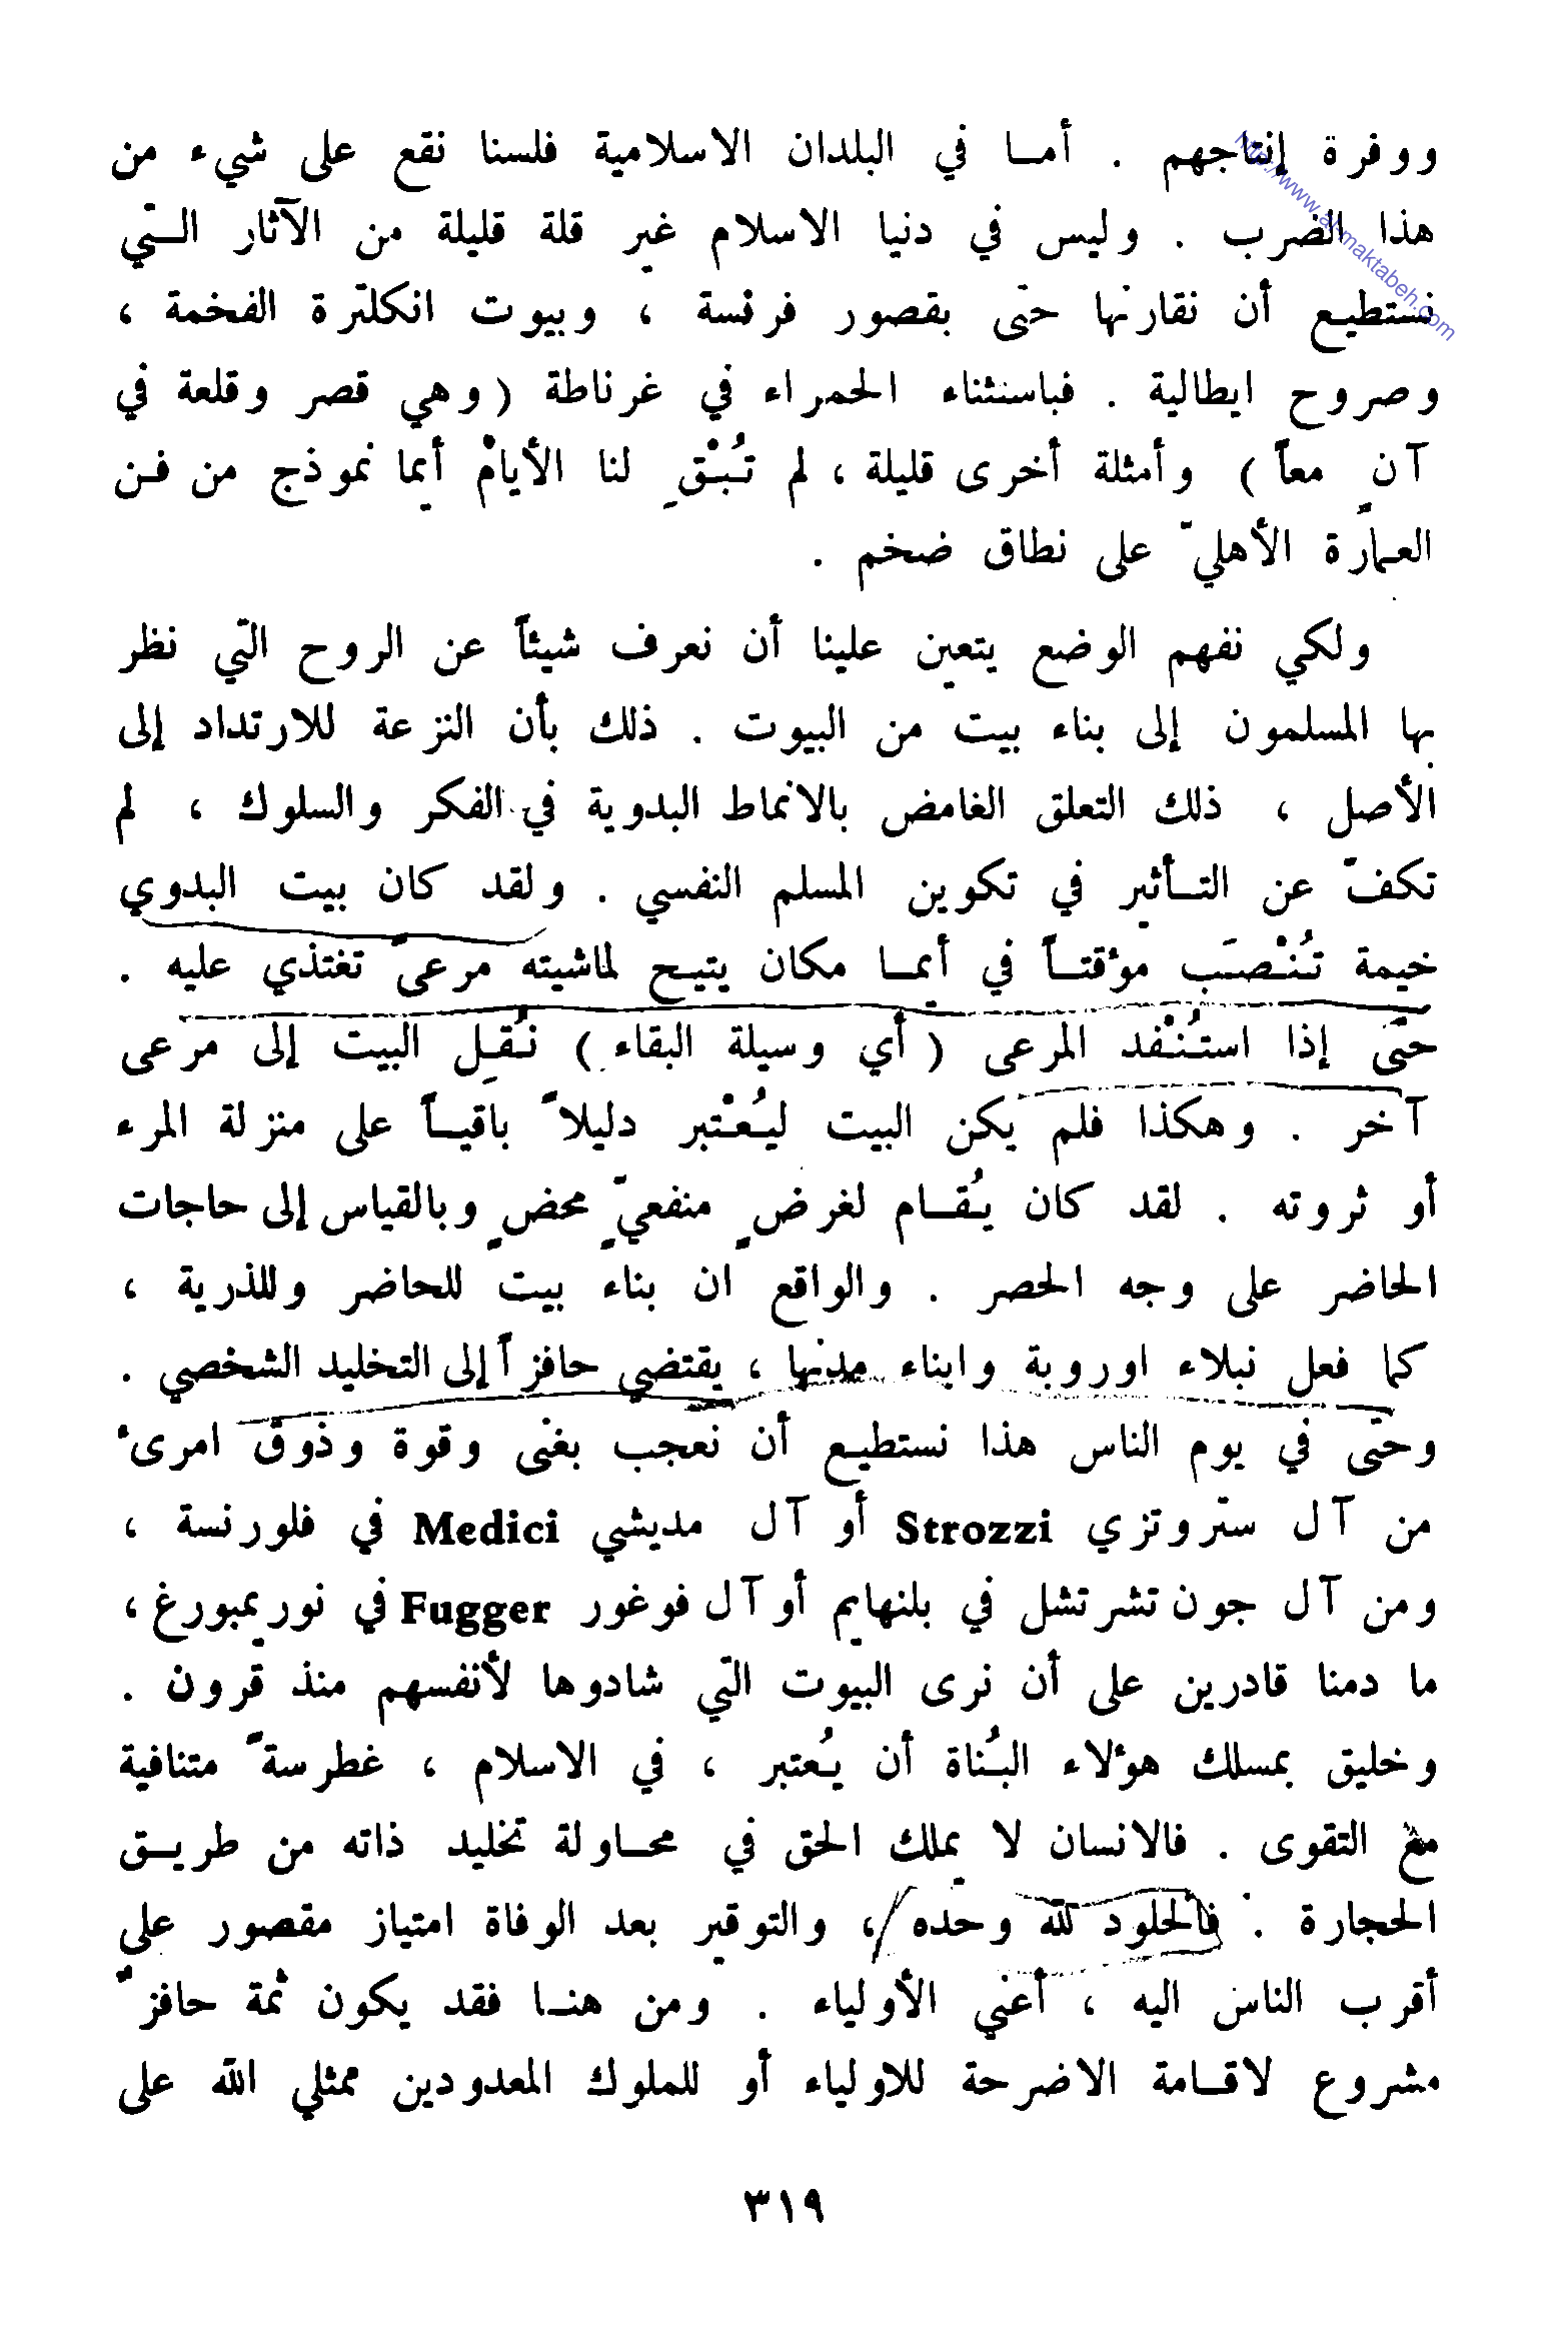 ووفرة إنتاجهم . أمـا في البلدان الاسلامية فلسنا نقع على شيء من
هذا الضرب . وليس في دنيا الاسلام غير قلة قليلة من الآثار الـتي
نستطيع أن نقارنها حتى بقصور فرنسة ، وبيوت انكلترة الفخمة ،
وصروح ايطالية . فباستثناء الحمراء في غرناطة ( وهي قصر وقلعة في
آنٍ معاً ) وأمثلة أخرى قليلة ، لم تُبْقِ لنا الأيامْ أيما نموذج من فـن
العمارة الأهليّ على نطاق ضخم .
ولكي نفهم الوضع يتعين علينا أن نعرف شيئاً عن الروح التي نظر
بها المسلمون إلى بناء بيت من البيوت . ذلك بأن النزعة للارتداد إلى
الأصل ، ذلك التعلق الغامض بالانماط البدوية في الفكر والسلوك ، لم
تكفّ عن التـأثير في تكوين المسلم النفسي . ولقد كان بيت البدوي
خيمة تُنْصَب مؤقتـاً في أيمـا مكان يتيـح لماشيته مرعىً تغتذي عليه .
حتى إذا استُنْفد المرعى ( أي وسيلة البقاء ) نُقِل البيت إلى مرعى
آخر . وهكذا فلم يكن البيت ليُعْتبر دليلاً باقيـاً على منزلة المرء
أو ثروته . لقد كان يُقـام لغرضٍ منفعيّ محضٍ وبالقياس إلى حاجات
الحاضر على وجه الحصر . والواقع ان بناء بيت للحاضر وللذرية ،
كما فعل نبلاء اوروبة وابناء مدنها ، يقتضي حافزاً إلى التخليد الشخصي .
وحتى في يوم الناس هذا نستطيـع أن نعجب بغنى وقوة وذوق امرىء
من آل ستروتزي Strozzi أو آل مديشي Medici في فلورنسة ،
ومن آل جون تشرتشل في بلنهايم أو آل فوغور Fugger في نوريمبورغ ،
ما دمنا قادرين على أن نرى البيوت التي شادوها لأنفسهم منذ قرون .
وخليق بمسلك هؤلاء البُناة أن يُعتبر ، في الاسلام ، غطرسةً متنافية
مع التقوى . فالانسان لا يملك الحق في محـاولة تخليد ذاته من طريـق
الحجارة . فالخلود لله وحده ، والتوقير بعد الوفاة امتياز مقصور على
أقرب الناس اليه ، أعني الأولياء . ومن هنـا فقد يكون ثمة حافزٌ
مشروع لاقـامة الاضرحة للاولياء أو للملوك المعدودين ممثلي الله على
٣١٩
http://www.al-maktabeh.com